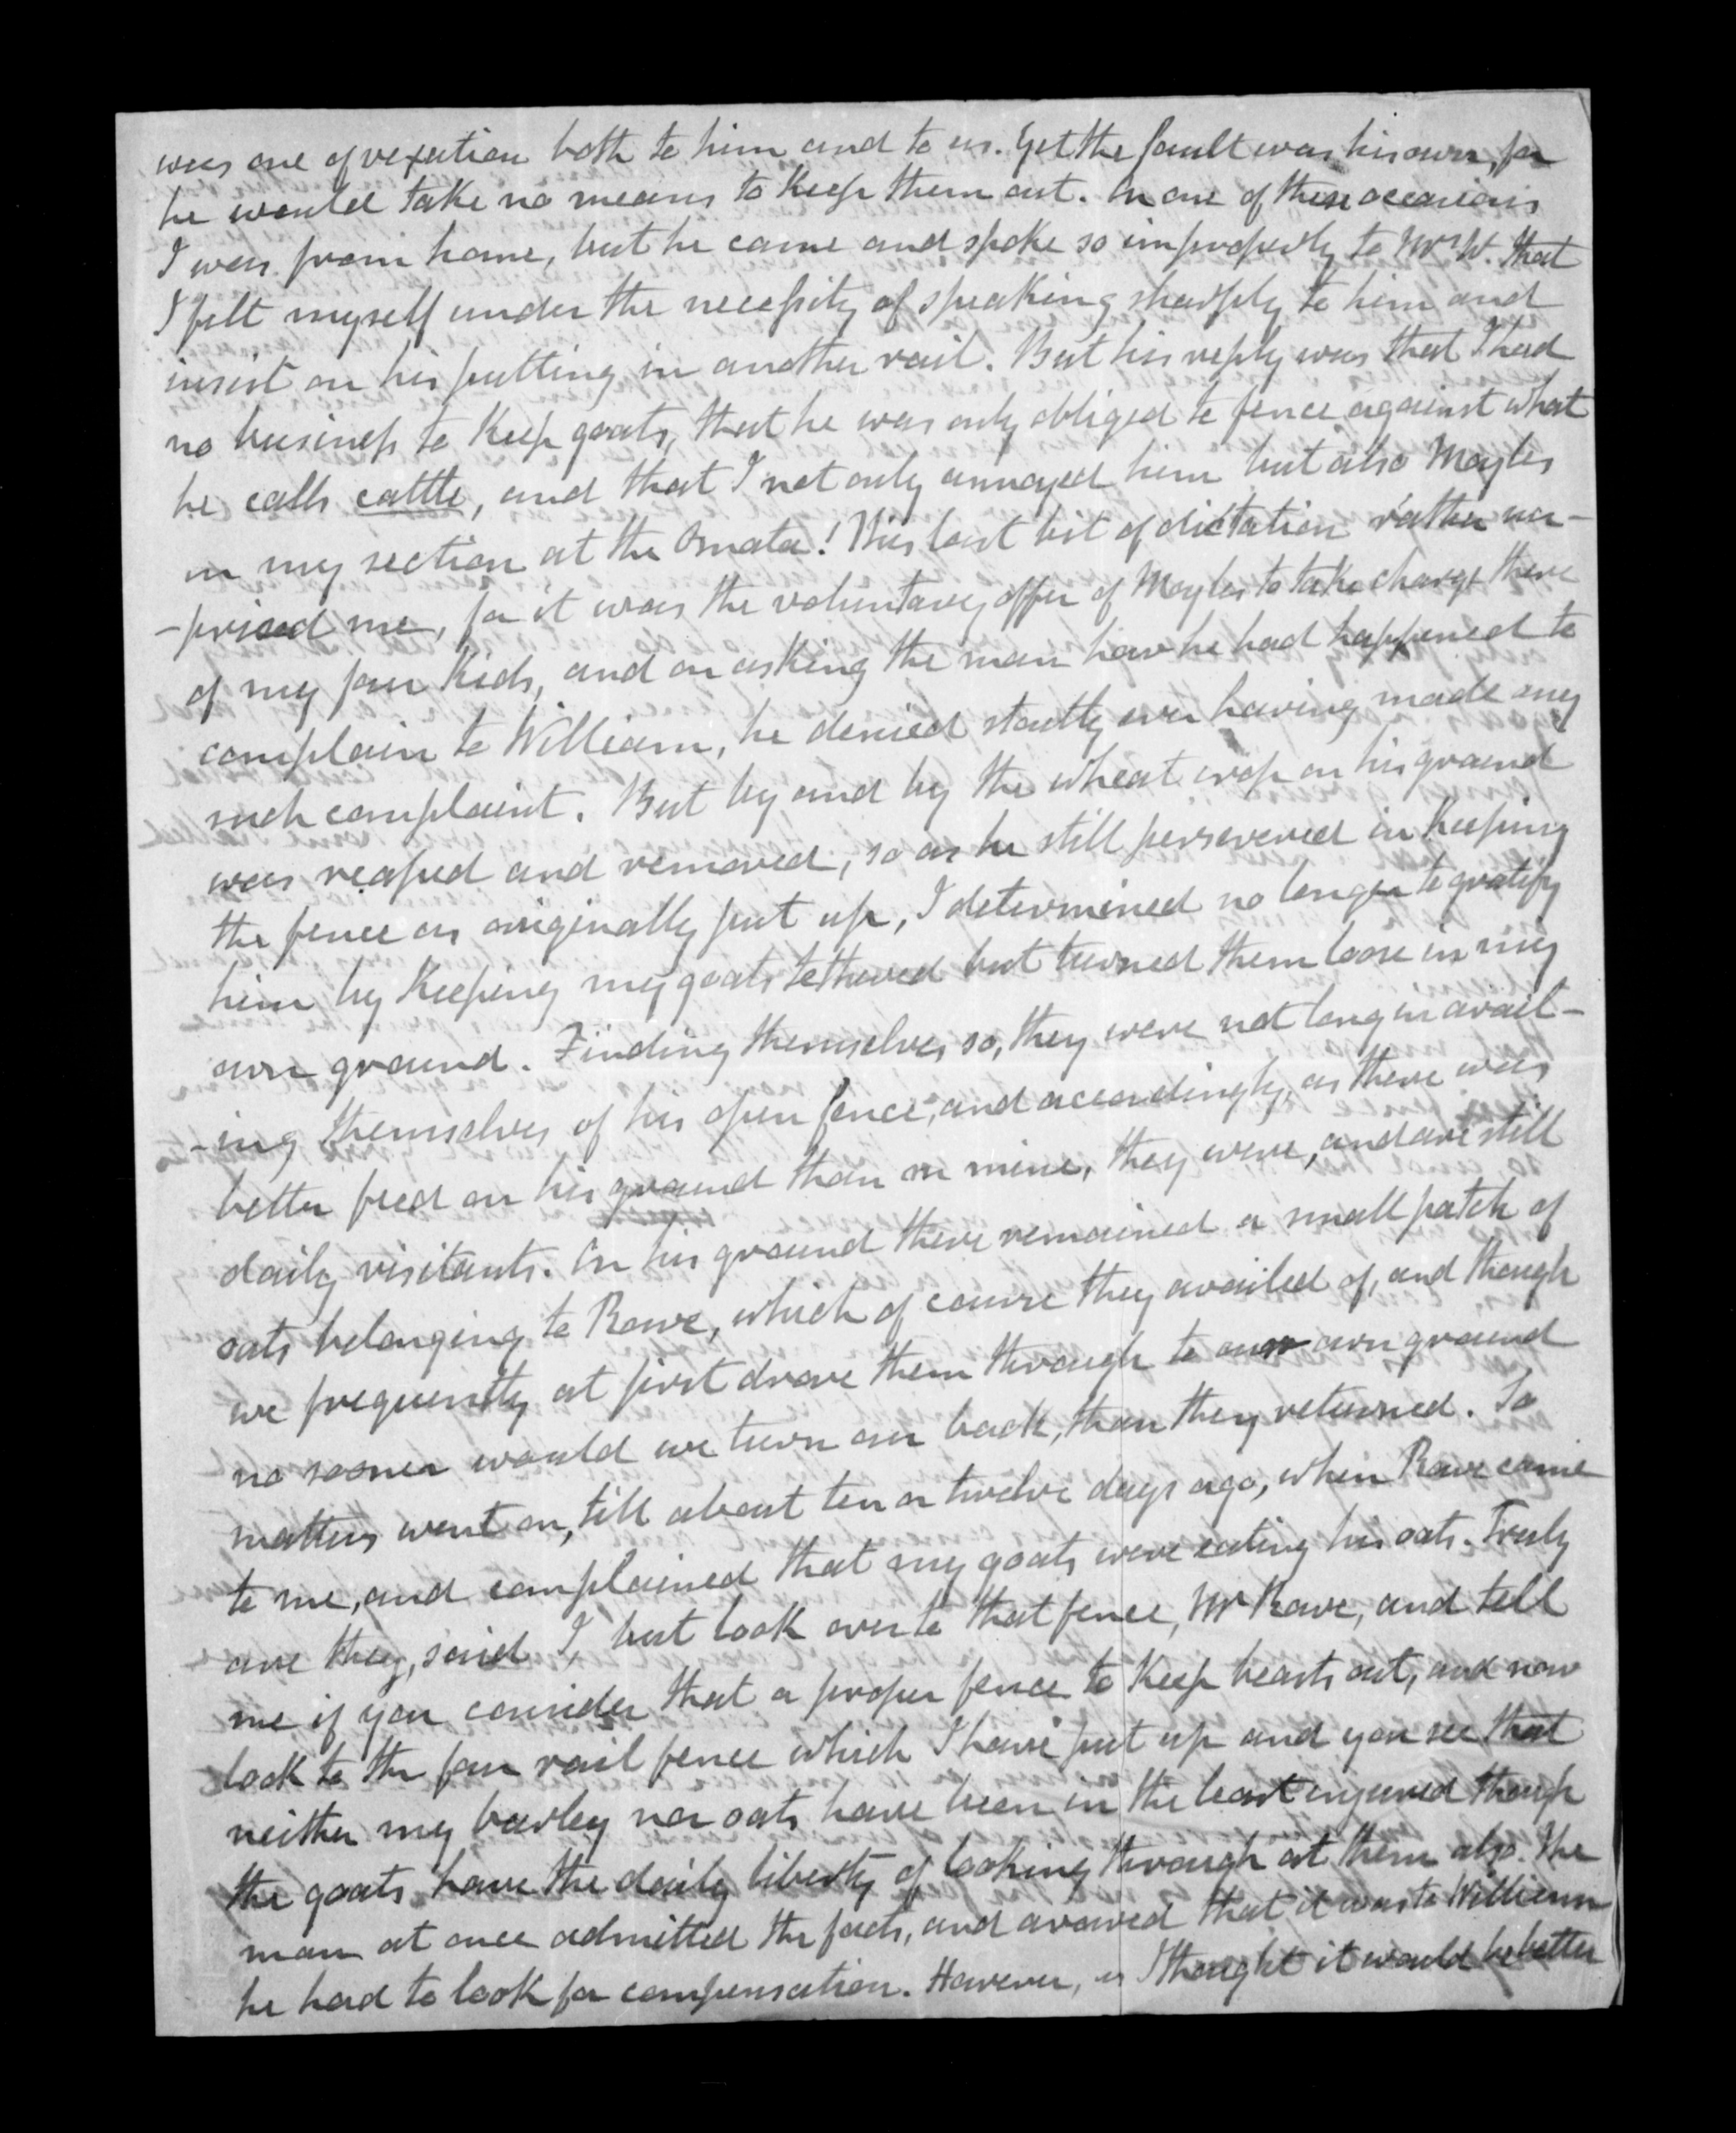 was one of vexation both to him and to us. Yet the fault was his own, for
he would take no means to keep them out. On one of these occasions
I was from home, but he came and spoke so improperly to Mrs W. that
I felt myself under the necessity of speaking sharply to him and
insist on his putting in another rail. But his reply was that I had
no business to keep goats, that he was only obliged to fence against what
he calls cattle, and that I not only annoyed him but also Moyles
in my section at the Omata! This last bit of dictation rather sur-
-prised me, for it was the voluntary offer of Moyles to take charge there
of my four kids, and on asking the man how he had happened to
complain to William, he denied stoutly ever having made any
such complaint. But by and by the wheat crop on his ground
was reaped and removed, so as he still persevered in keeping
the fence as originally put up, I determined no longer to gratify
him by keeping my goats tethered but turned them loose in my
own ground. Finding themselves so, they were not long in avail-
-ing themselves of his open fence, and accordingly, as there was
better feed on his ground than on mine, they were, and are still
daily visitants. On his ground there remained a small patch of
oats belonging to Rowe, which of course they availed of, and though
we frequently at first drove them through to our own ground
no sooner would we turn our back, than they returned. So
matters went on, till about ten or twelve days ago, when Rowe came
to me, and complained that my goats were eating his oats. Truly
are they, said I, but look over to that fence, Mr Rowe, and tell
me if you consider that a proper fence to keep beasts out, and now
look to the four rail fence which I have put up and you see that
neither my barley nor oats have been in the least injured though
the goats have the daily liberty of looking through at them also. The
man at once admitted the facts, and avowed that it was to William
he had to look for compensation. However, as I thought it would be better